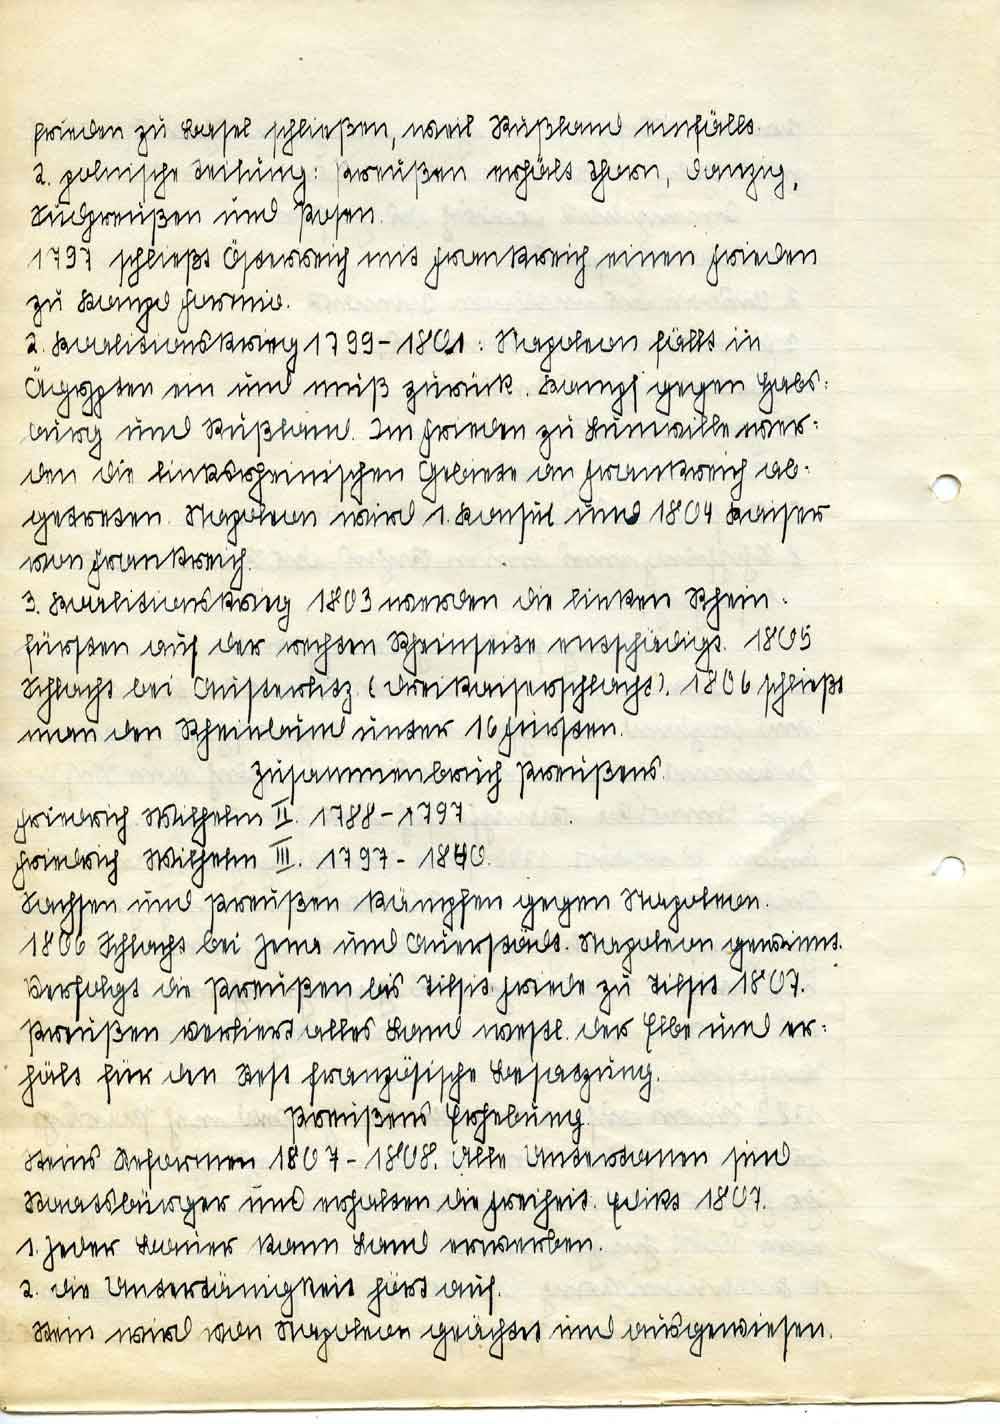 Frieden zu Basel schließen, weil Rußland einfällt.
2. polnische Teilung: Preußen erhält Thorn, Danzig,
Südpreußen und Posen.
1797 schließt Österreich mit Frankreich einen Frieden
zu Campo Formio.
2. Koalitionskrieg 1799-1801: Napoleon fällt in
Ägypten ein und muß zurück. Kampf gegen Habs-
burg und Rußland. Im Frieden zu Lunville wer-
den die linksrheinischen Gebiete an Frankreich ab-
getreten. Napoleon wird 1. Konsul und 1804 Kaiser
von Frankreich.
3. Koalitionskrieg 1803 werden die linken Rhein-
fürsten auf der rechten Rheinseite entschädigt. 1805
Schlacht bei Austerlitz (Dreikaiserschlacht). 1806 schließt
man den Rheinbund unter 16 Fürsten.
Zusammenbruch Preußens.
Friedrich Wilhelm II. 1788-1797
Friedrich Wilhelm III. 1797-1840.
Sachsen und Preußen kämpfen gegen Napoleon.
1806 Schlacht bei Jena und Auerstädt. Napoleon gewinnt.
Verfolgt die Preußen bis Tilsit. Friede zu Tilsit 1807.
Preußen verliert alles Land westl. der Elbe und er-
hält für den Rest französische Besatzung.
Preußens Erhebung.
Steins Reformen 1807-1808. Alle Untertanen sind
Staatsbürger und erhalten die Freiheit. Edikt 1807.
1. Jeder Bauer kann Land erwerben.
2. die Untertänigkeit hört auf.
Stein wird von Napoleon geächtet und ausgewiesen.